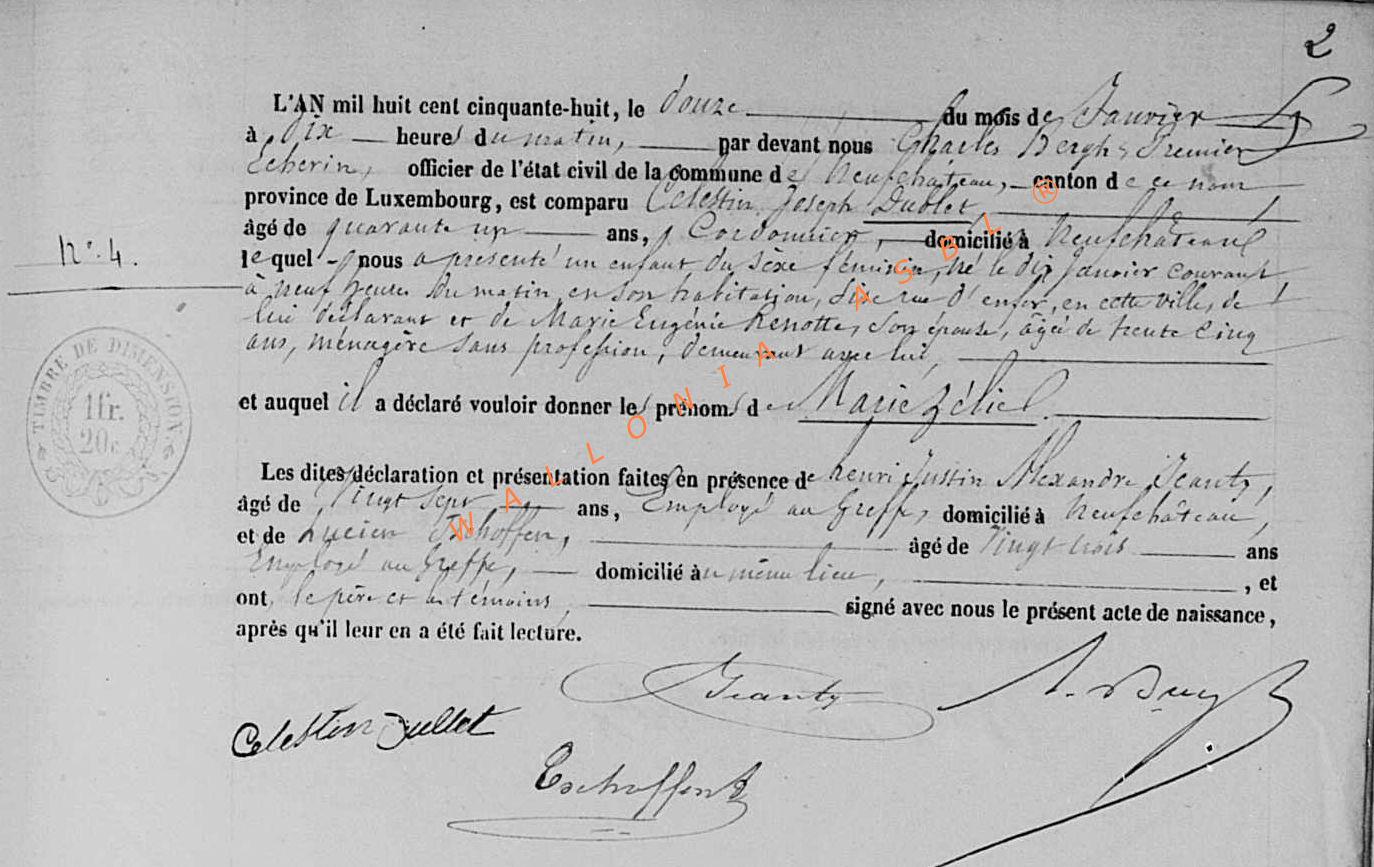 2
L'AN mil huit cent cinquante-huit, le douze du mois de Janvier
à dix heures du matin, par devant nous Charles Bergh, Premier
Echevin, officier de l'état civil de la commune de Neufchâteau, canton de ce nom
province de Luxembourg, est comparu Célestin Joseph Dublet,
âgé de quarante un ans, Cordonnier, domicilié à Neufchâteau
N° 4.
lequel nous a présenté un enfant du sexe féminin, né le dix Janvier courant
à neuf heures du matin, en son habitation, sise rue d'enfer, en cette ville, de
lui déclarant et de Marie Eugénie Renotte, son épouse, âgée de trente cinq
ans, ménagère sans profession, demeurant avec lui,
TIMBRE DE DIMENSION
1 fr.
20c
et auquel il a déclaré vouloir donner les prénoms de Marie Zélie
Les dites déclaration et présentation faites en présence de henri Justin Alexandre Jeanty,
âgé de Vingt sept ans, Employé au Greffe, domicilié à Neufchâteau,
et de Lucien Tschoffen, âgé de Vingt trois ans
Employé au Greffe, domicilié au même lieu, , et
ont, le père et les témoins, signé avec nous le présent acte de naissance,
après qu'il leur en a été fait lecture.
Jeanty
Celestin Dullet
Tschoffen
WALLONIA ASBL ®